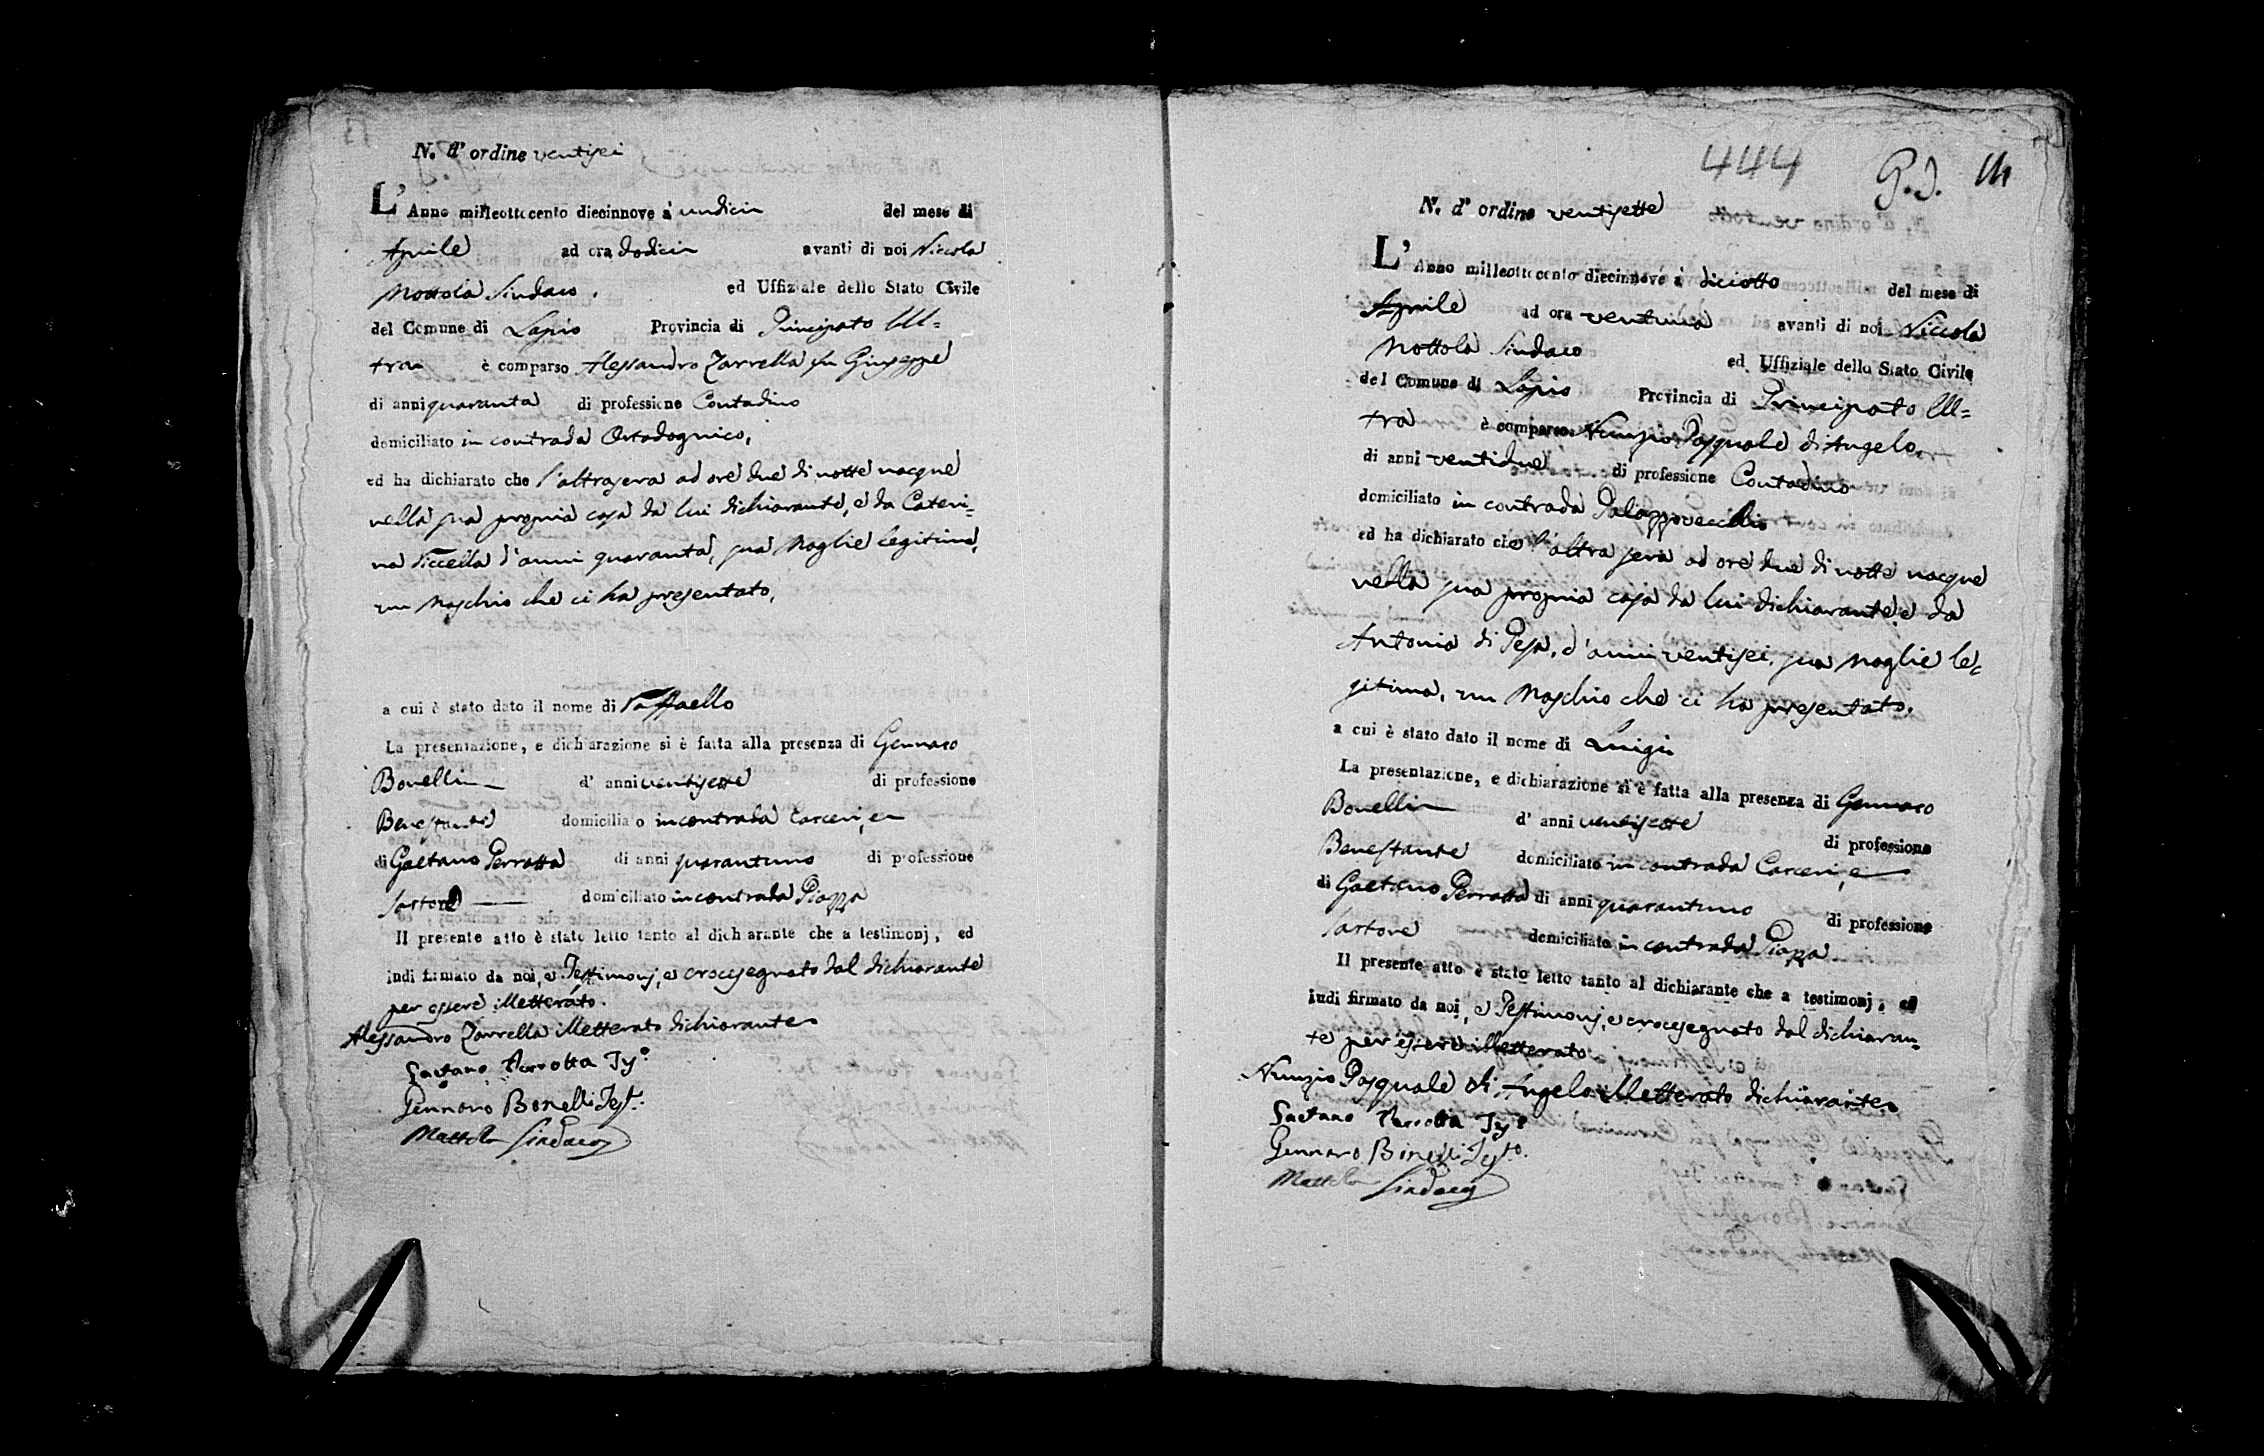 N. d' ordine ventisei
L' Anno milleottocento diecinnove a' undici del mese di
Aprile ad ora dodici avanti di noi Niccola
Mottola Sindaco, ed Uffiziale dello Stato Civile
del Comune di Lapio Provincia di Principato Ul=
tra è comparso Alessandro Zarrella fu Giuseppe
di anni quaranta di professione Contadino
domiciliato in contrada Ortodognico,
ed ha dichiarato che l'altrasera ad ore due di notte nacque
nella sua propria casa da lui dichiarante, e da Cateri=
na Piccella d'anni quaranta, sua Moglie legitima,
un Maschio che ci ha presentato,
a cui è stato dato il nome di Raffaello
La presentazione, e dichiarazione si è fatta alla presenza di Gennaro
Bonelli d' anni ventisette di professione
Benestante domiciliato in contrada Carceri, e
di Gaetano Perrotta di anni quarantuno di professione
Sartore domiciliato in contrada Piazza
Il presente atto è stato letto tanto al dichiarante che a testimonj, ed
indi firmato da noi, e Testimonj, e crocesegnato dal dichiarante
per essere illetterato.
Alessandro Zarrella illetterato dichiarante
Gaetano Perrotta Tes.o
Gennaro Bonelli Test.
Mottola Sindaco
444 G. J. 14
N. d' ordine ventisette
L' Anno milleottocento diecinnove a' diciotto del mese di
Aprile ad ora ventuna avanti di noi Niccola
Mottola Sindaco ed Uffiziale dello Stato Civile
del Comune di Lapio Provincia di Principato Ul=
tra è comparso Nunzio Pasquale di Angelo,
di anni ventidue di professione Contadino
domiciliato in contrada Palazzovecchio
ed ha dichiarato che l'altra sera ad ore due di notte nacque
nella sua propria casa da lui dichiarante, e da
Antonia di Pesa, d'anni ventisei, sua Moglie le=
gitima, un Maschio che ci ha presentato,
a cui è stato dato il nome di Luigi
La presentazione, e dichiarazione si è fatta alla presenza di Gennaro
Bonelli d' anni ventisette di professione
Benestante domiciliato in contrada Carceri, e
di Gaetano Perrotta di anni quarantuno di professione
Sartore domiciliato in contrada Piazza
Il presente atto è stato letto tanto al dichiarante che a testimonj, ed
indi firmato da noi, e Testimonj, e crocesegnato dal dichiaran=
te per essere illetterato
Nunzio Pasquale di Angelo illetterato dichiarante
Gaetano Perrotta Tes.o
Gennaro Bonelli Test.o
Mottola Sindaco